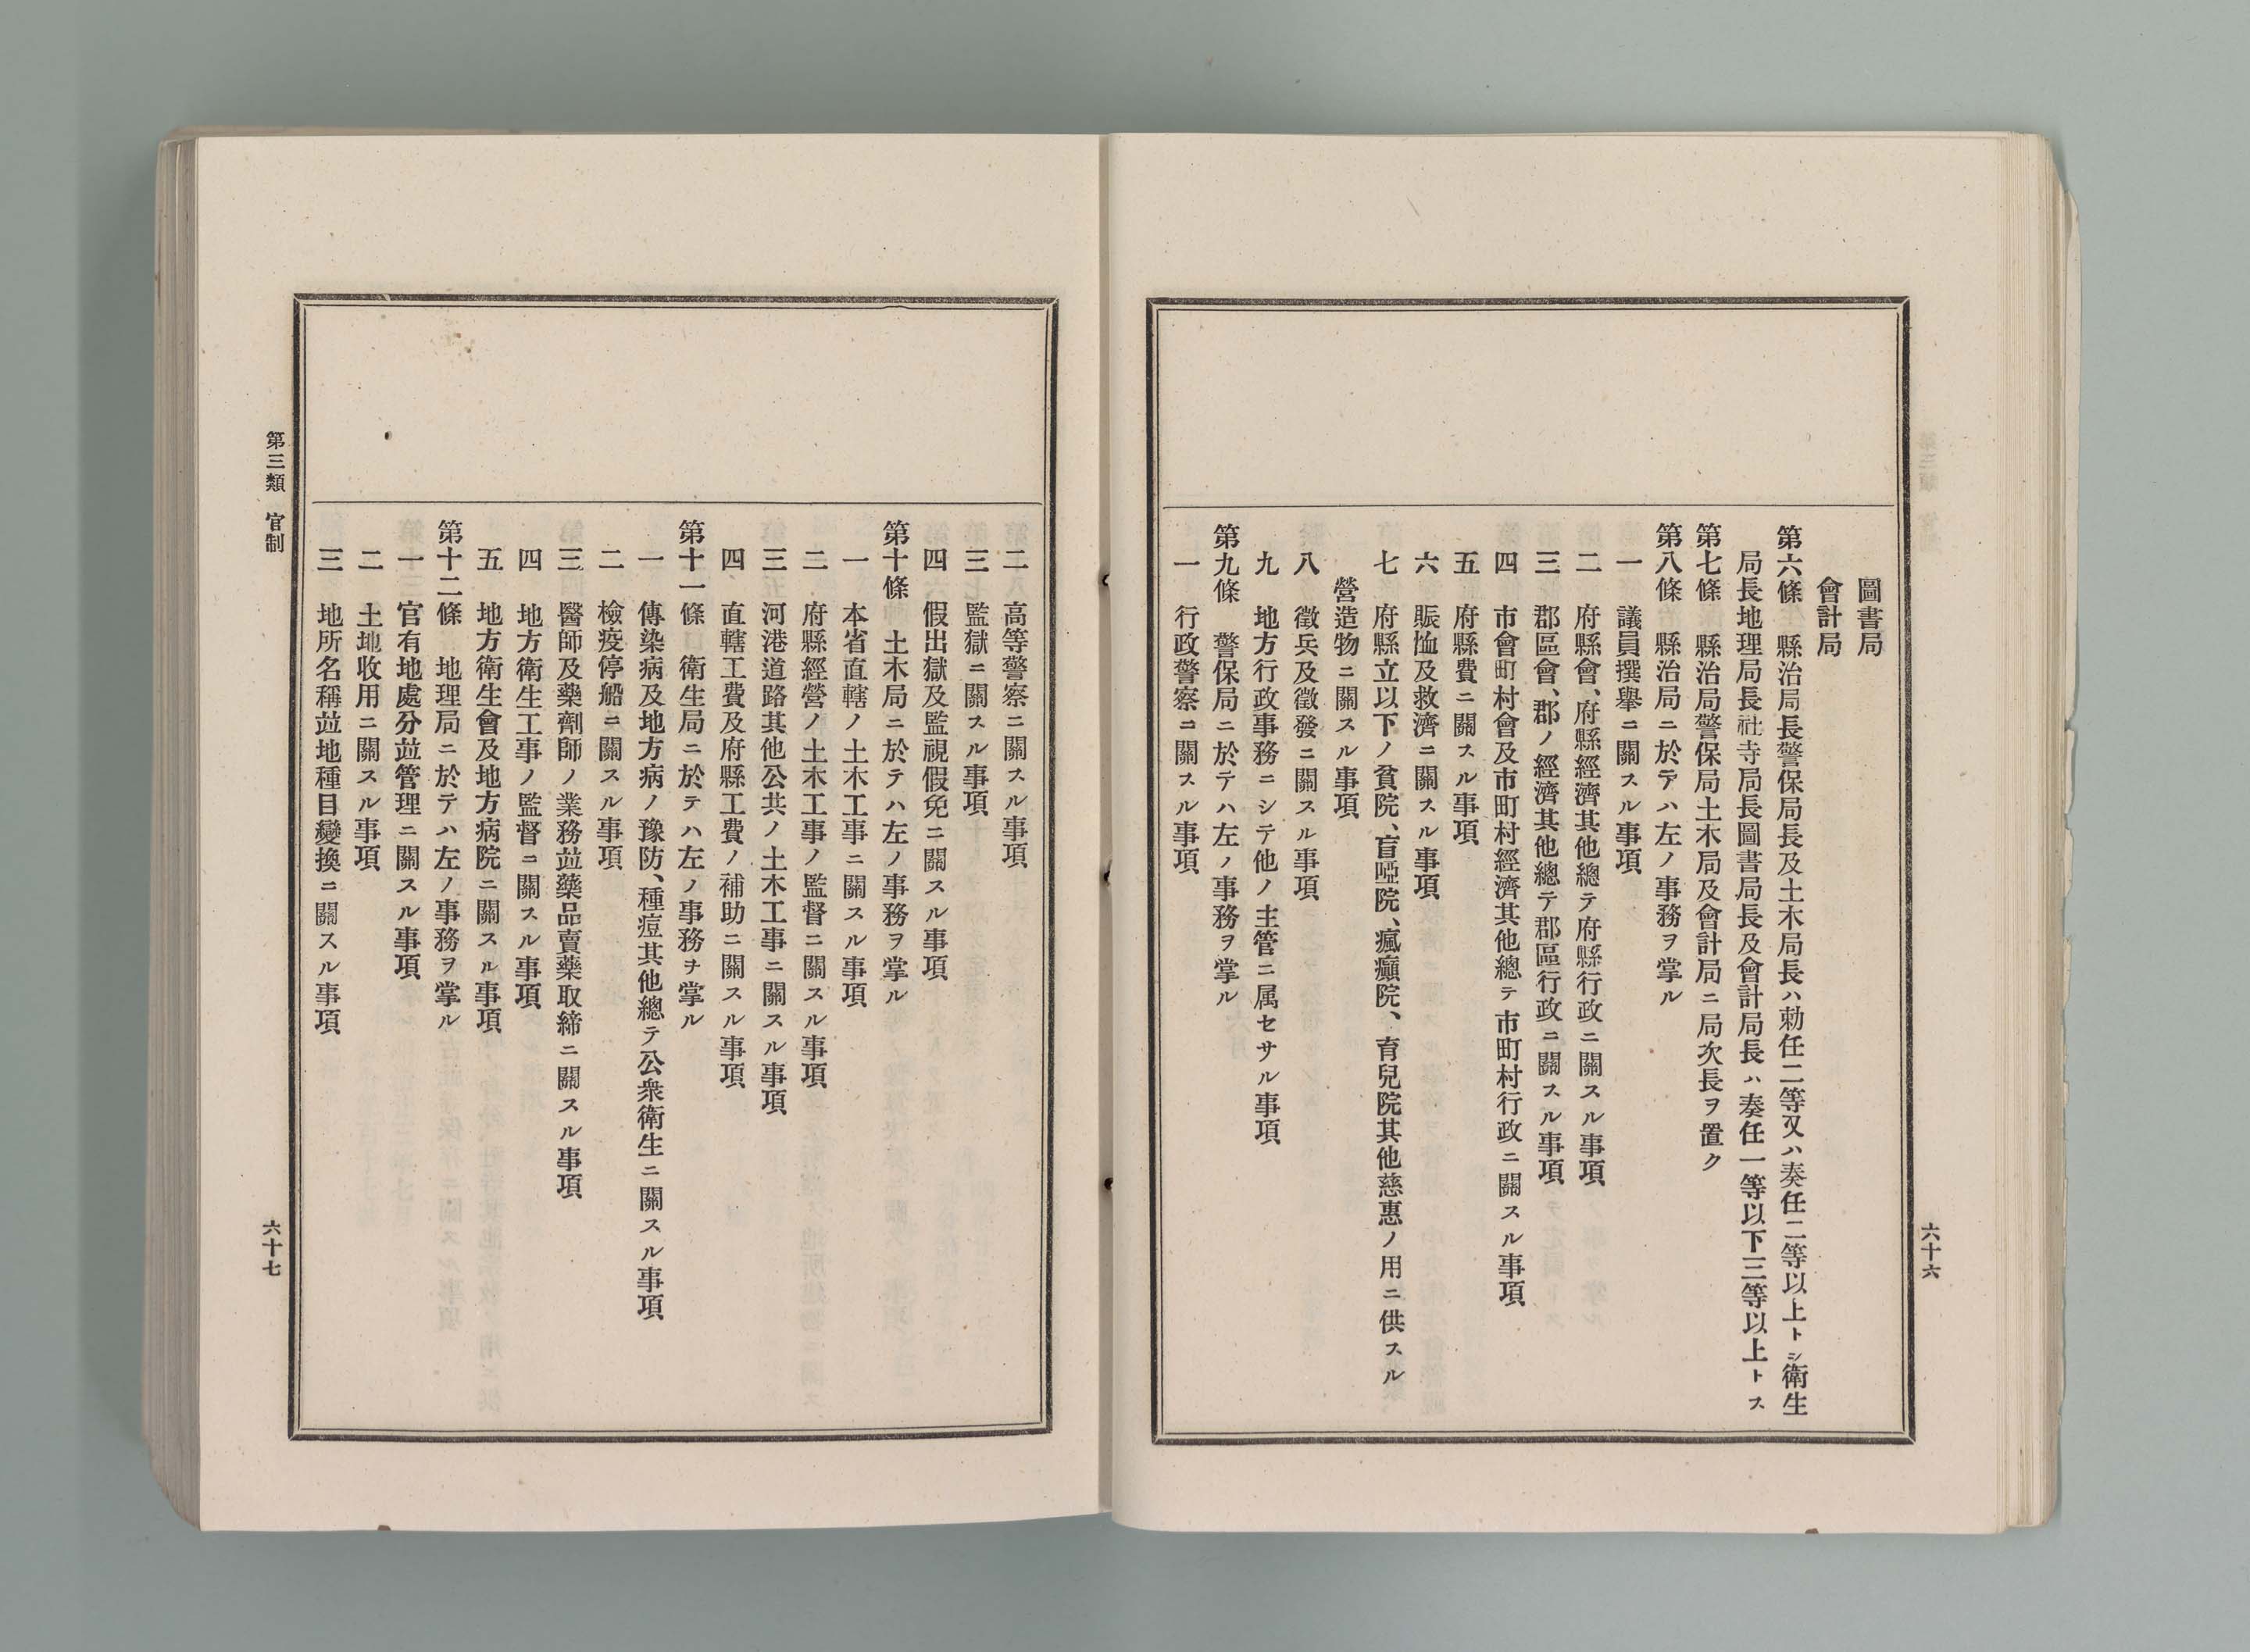 圖書局
會計局
第六條　縣治局長警保局長及土木局長ハ勅任二等又ハ奏任二等以上トシ衛生
局長地理局長社寺局長圖書局長及會計局長ハ奏任一等以下三等以上トス
第七條　縣治局警保局土木局及會計局ニ局次長ヲ置ク
第八條　縣治局ニ於テハ左ノ事務ヲ掌ル
一　議員撰擧ニ關スル事項
二　府縣會、府縣經濟其他總テ府縣行政ニ關スル事項
三　郡區會、郡ノ經濟其他總テ郡區行政ニ關スル事項
四　市會町村會及市町村經濟其他總テ市町村行政ニ關スル事項
五　府縣費ニ關スル事項
六　賑恤及救濟ニ關スル事項
七　府縣立以下ノ貧院、盲啞院、瘋癲院、育兒院其他慈惠ノ用ニ供スル
營造物ニ關スル事項
八　徵兵及徵發ニ關スル事項
九　地方行政事務ニシテ他ノ主管ニ属セサル事項
第九條　警保局ニ於テハ左ノ事務ヲ掌ル
一　行政警察ニ關スル事項
六十六
二　高等警察ニ關スル事項
三　監獄ニ關スル事項
四　假出獄及監視假免ニ關スル事項
第十條　土木局ニ於テハ左ノ事務ヲ掌ル
一　本省直轄ノ土木工事ニ關スル事項
二　府縣經營ノ土木工事ノ監督ニ關スル事項
三　河港道路其他公共ノ土木工事ニ關スル事項
四　直轄工費及府縣工費ノ補助ニ關スル事項
第十一條　衛生局ニ於テハ左ノ事務ヲ掌ル
一　傳染病及地方病ノ豫防、種痘其他總テ公衆衛生ニ關スル事項
二　檢疫停船ニ關スル事項
三　醫師及藥劑師ノ業務並藥品賣藥取締ニ關スル事項
四　地方衛生工事ノ監督ニ關スル事項
五　地方衛生會及地方病院ニ關スル事項
第十二條　地理局ニ於テハ左ノ事務ヲ掌ル
一　官有地處分並管理ニ關スル事項
二　土地收用ニ關スル事項
三　地所名稱並地種目變換ニ關スル事項
第三類　官制
六十七